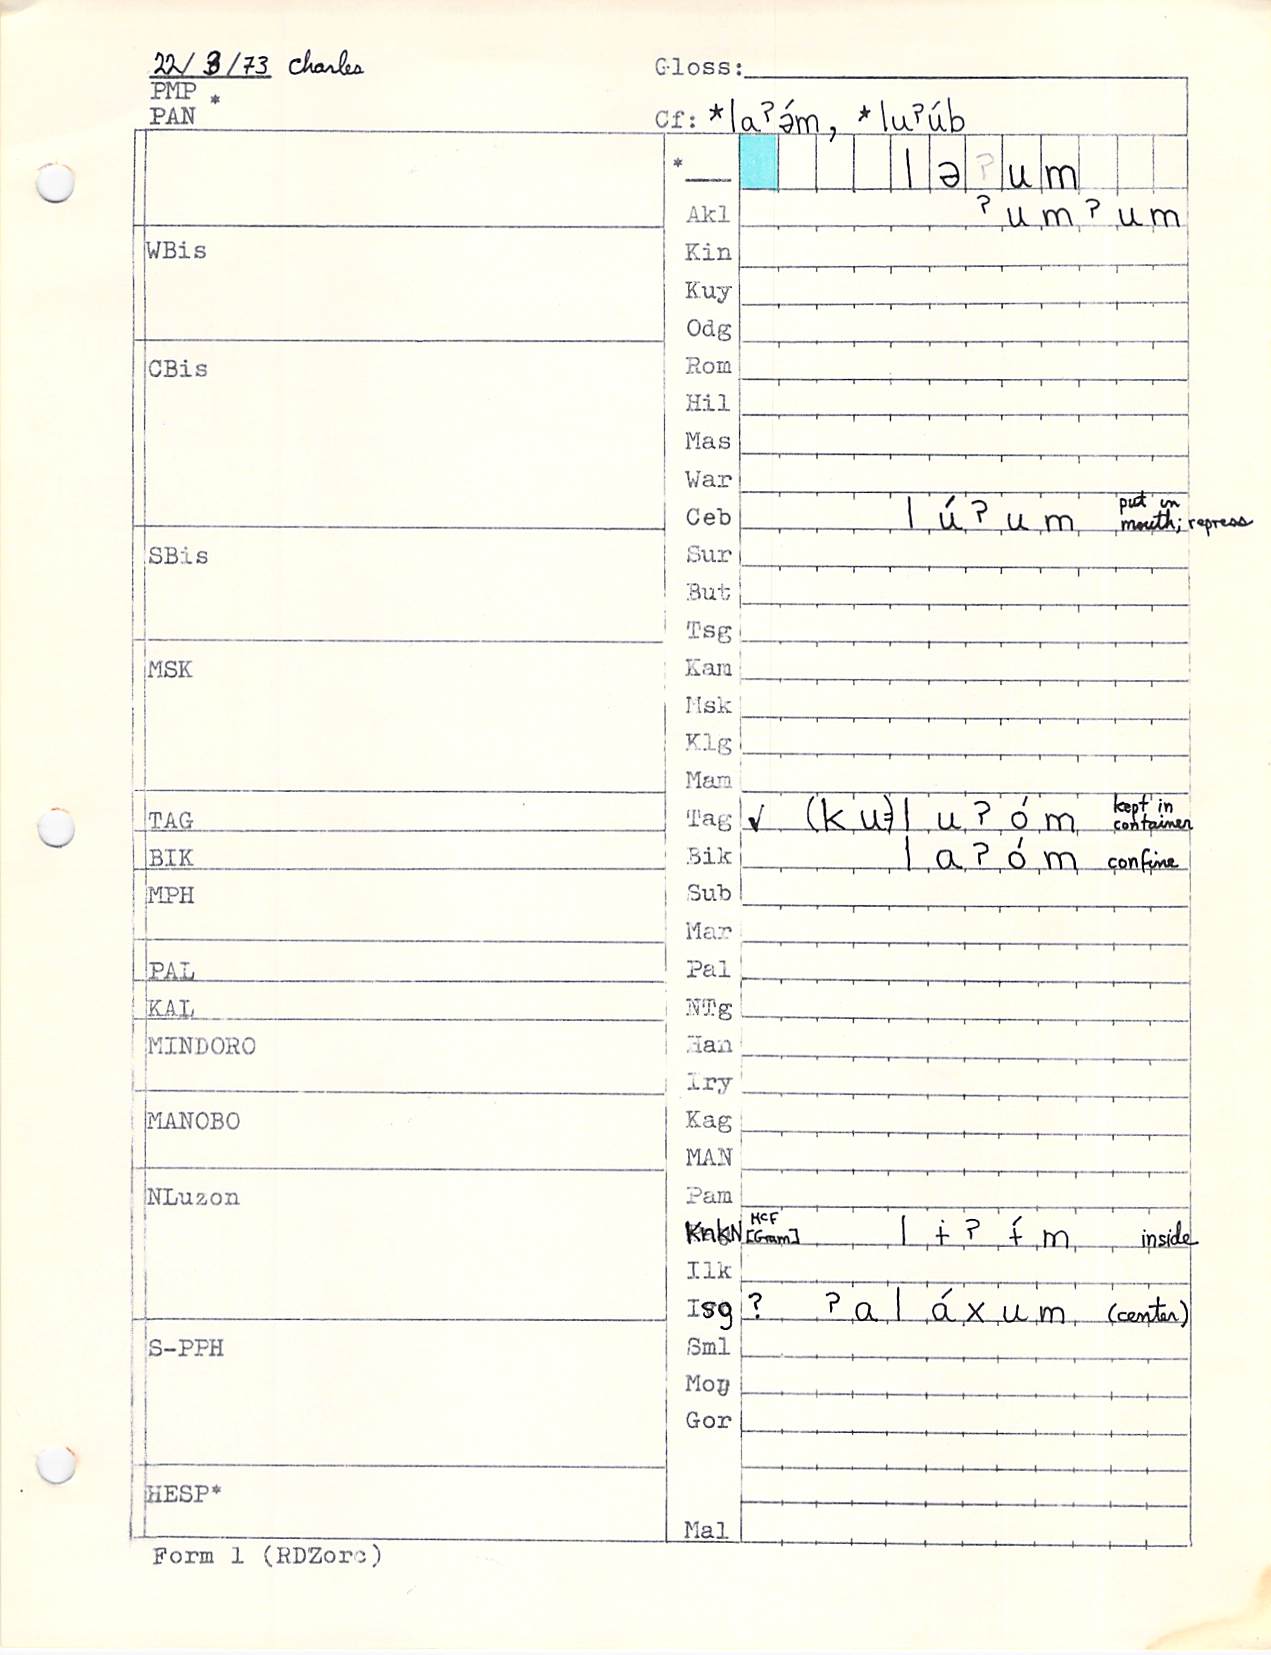 22/3/73 Charles Gloss:
PMP *
PAN Cf: *laʔə́m, *luʔúb
* ləʔum
Akl ʔumʔum
WBis Kin
Kuy
Odg
CBis Rom
Hil
Mas
War
Ceb lúʔum put in mouth; repress
SBis Sur
But
Tsg
MSK Kam
Msk
Klg
Mam
TAG Tag ✓ (ku=)luʔóm kept in container
BIK Bik laʔóm confine
MPH Sub
Mar
PAL Pal
KAL NTg
MINDORO Han
Iry
MANOBO Kag
MAN
NLuzon Pam
KnkN [Gram] lɨʔɨ́m inside
Ilk
Isg ? ʔaláxum (center)
S-PPH Sml
Mog
Gor
HESP*
Mal
Form 1 (RDZorc)